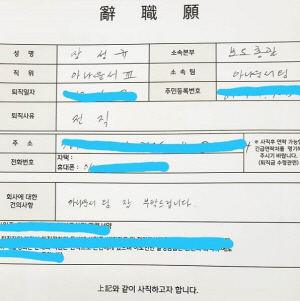 辭職願
성 명 장성규 소속본부 보도총괄
직 위 아나운서 Ⅲ 소 속 팀 아나운서팀
퇴직일자 주민등록번호
퇴직사유 전직
주 소
※ 사직후 연락 가능한
긴급연락처를 명기해
주시기 바랍니다.
(퇴직금 수령관련)
전화번호 자택 :
휴대폰 :
회사에 대한
건의사항
아나운서 팀 잘 부탁드립니다.
上記와 같이 사직하고자 합니다.